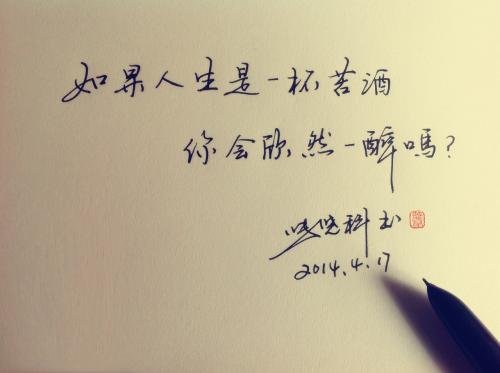 如果人生是一杯苦酒
你会欣然一醉吗?
晓科书
2014.4.17